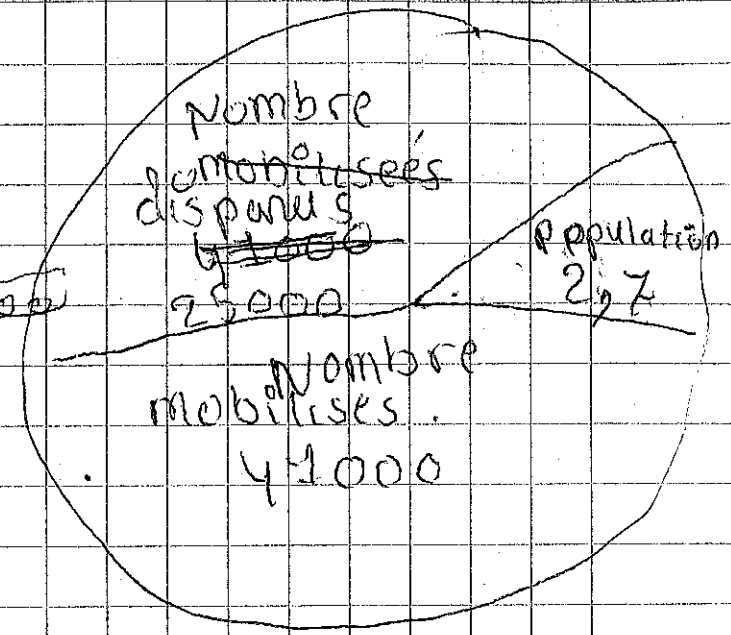 Nombre
mobilisées
disparus
41000
25000
population
2,7
Nombre
mobilisés.
41000